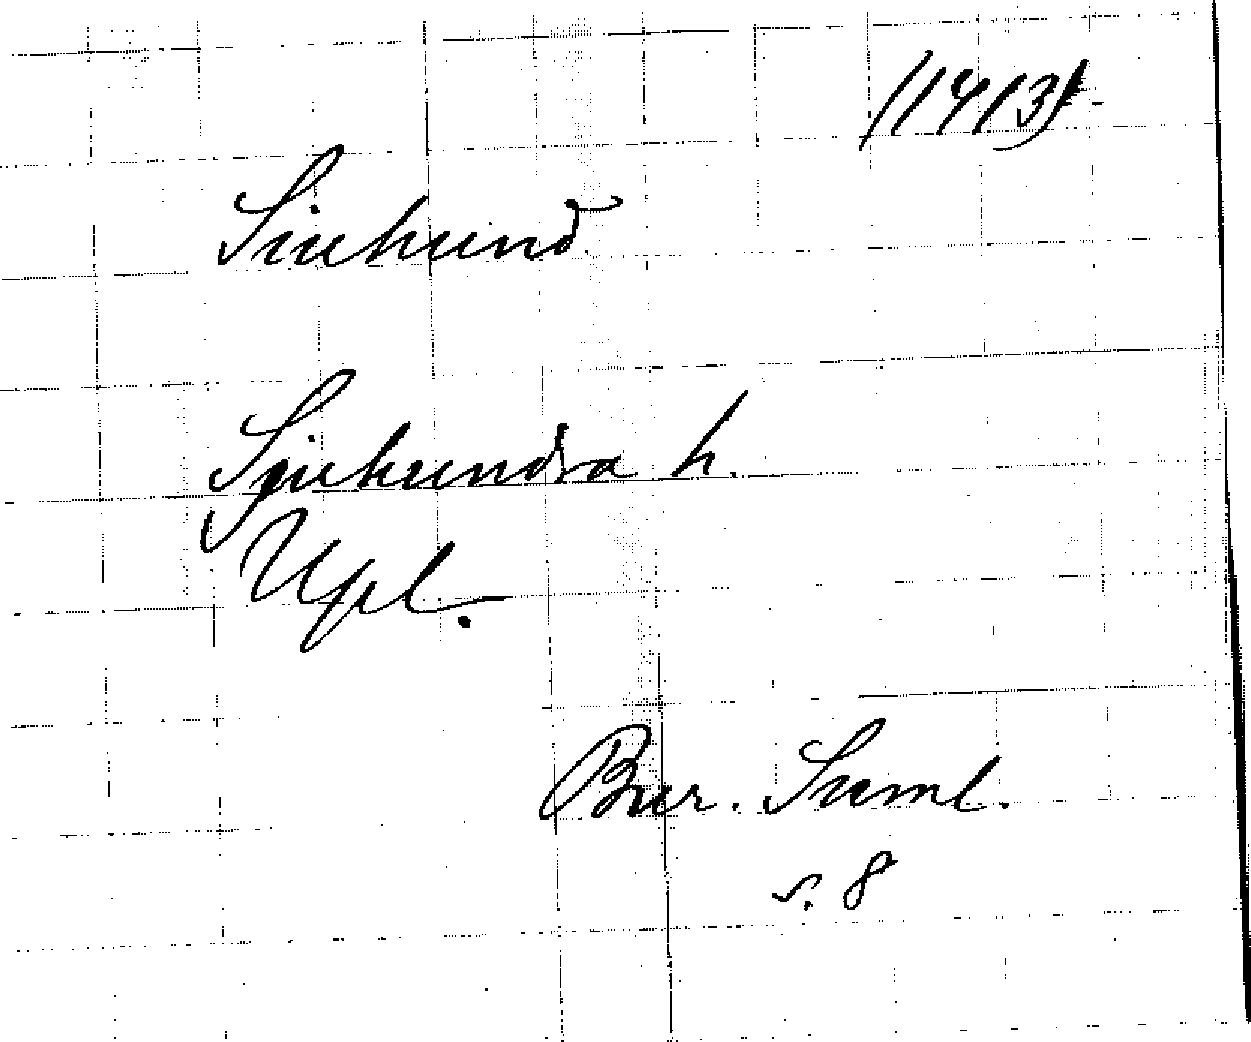 (1413)
Siuhund
Sjuhundra h.
Upl.
Bur. Saml.
s. 8